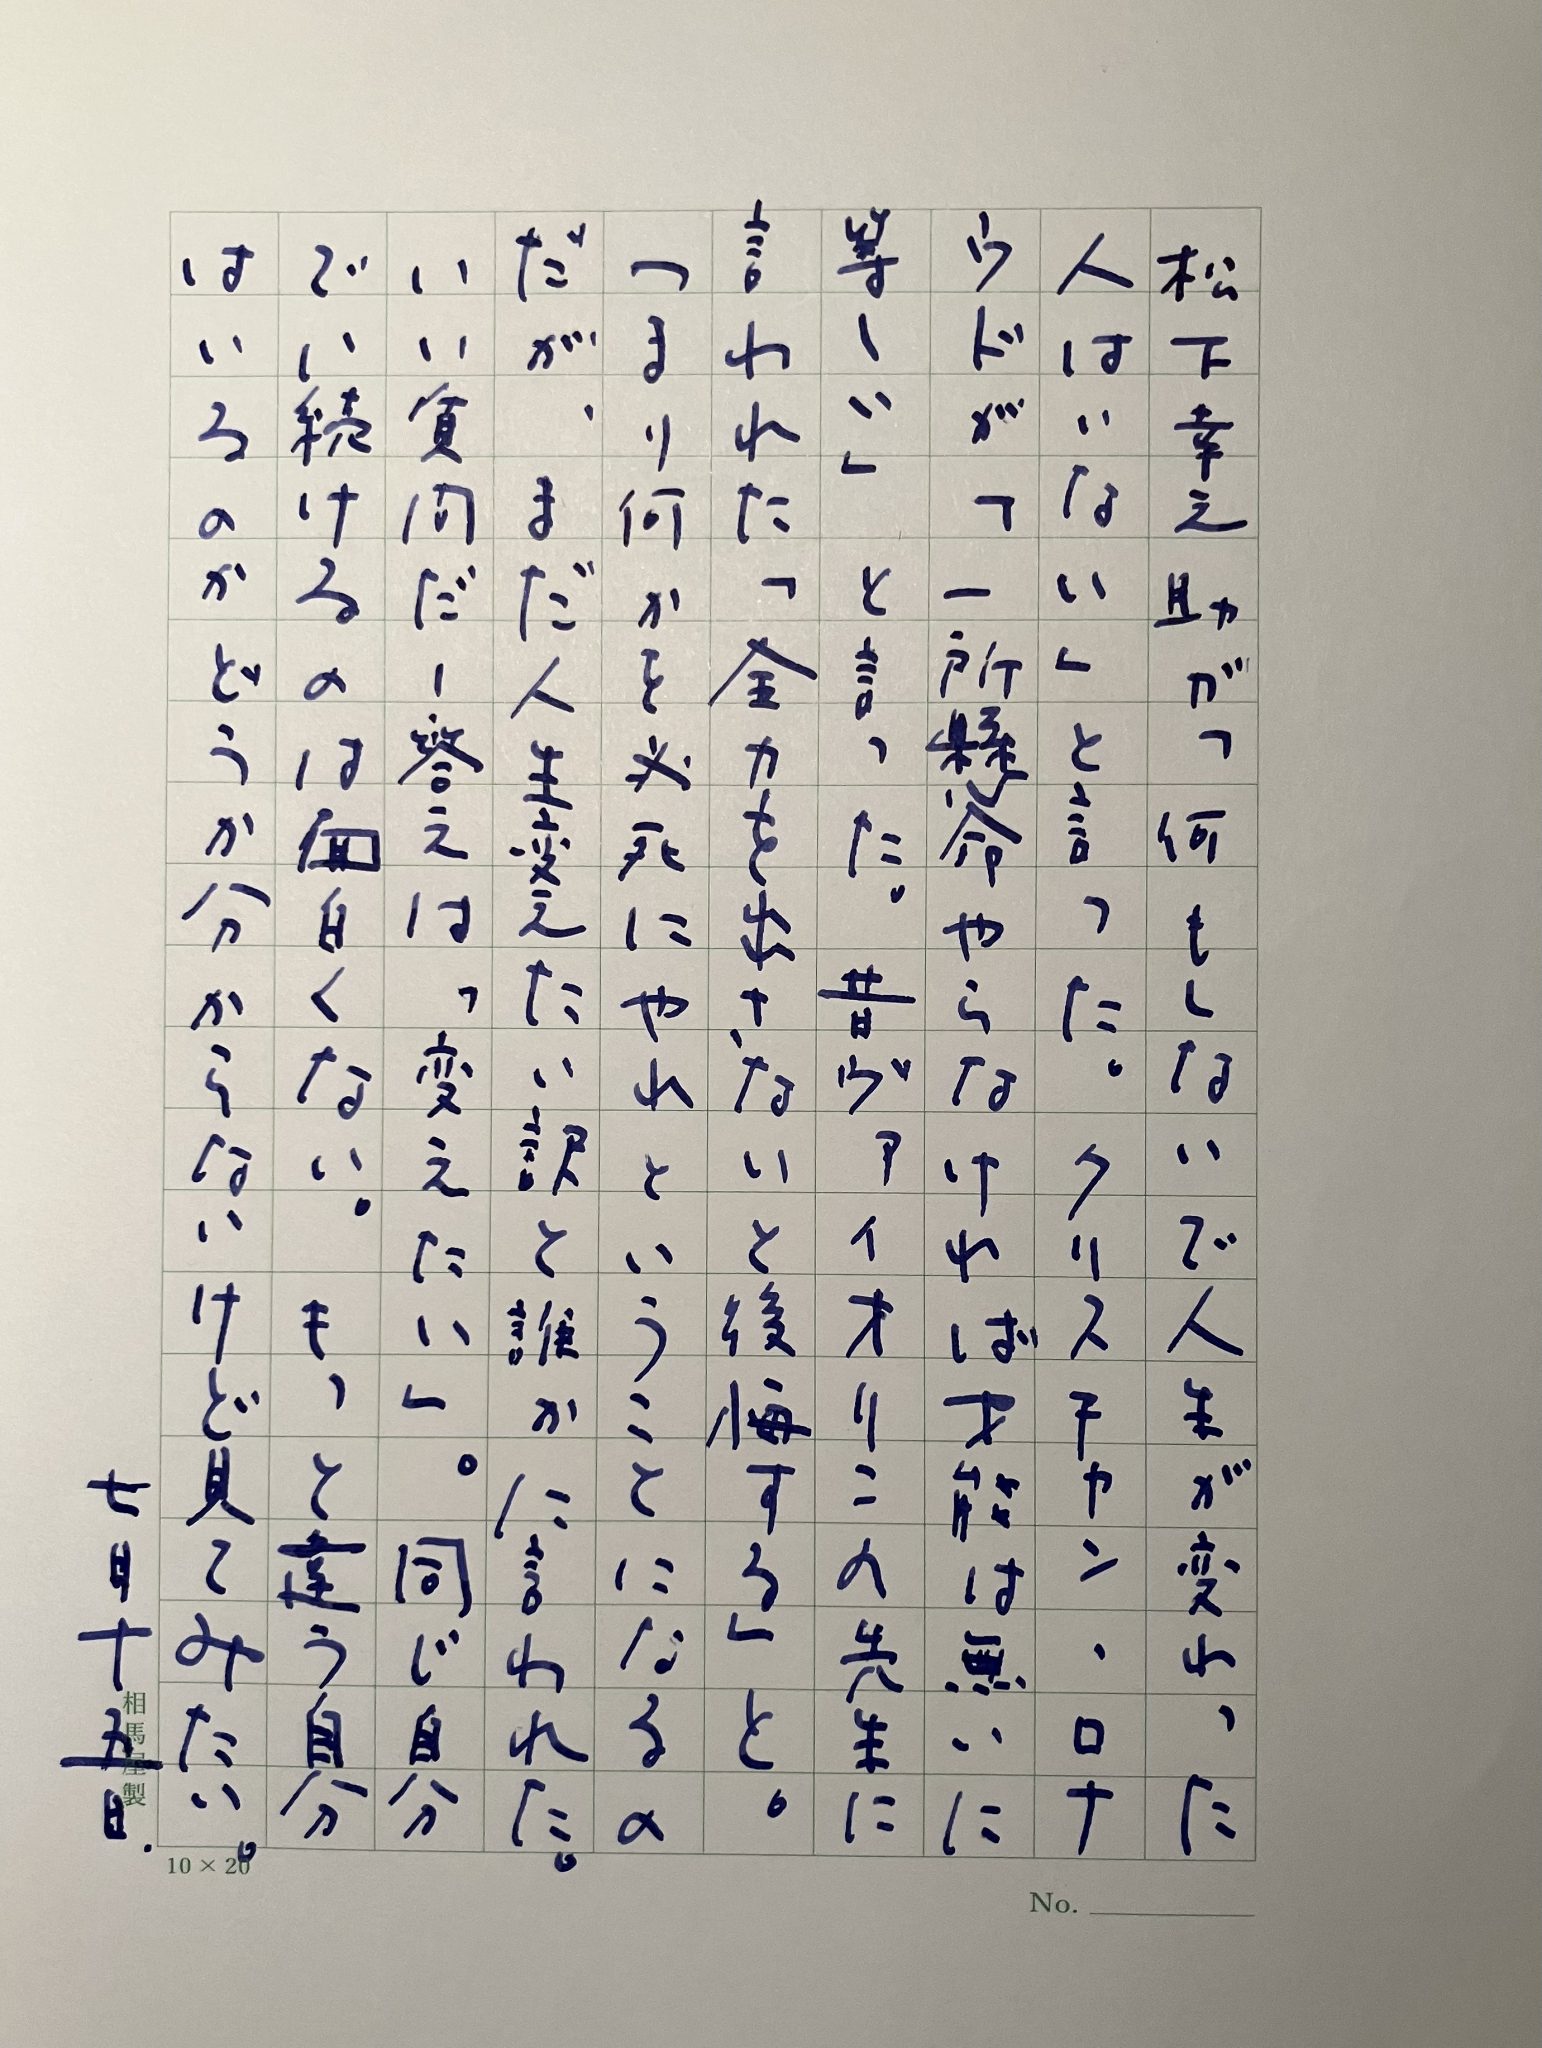 松下幸之助が「何もしないで人生が変わった
人はいない」と言った。クリスチャン・ロナ
ウドが「一所懸命やらなければ才能は無いに
等しい」と言った。昔ヴァイオリンの先生に
言われた「全力を出さないと後悔する」と。
つまり何かを必死にやれということになるの
だが、まだ人生変えたい訳と誰かに言われた。
いい質問だし答えは「変えたい」。同じ自分
でい続けるのは面白くない。もっと違う自分
はいるのかどうか分からないけど見てみたい。
七月十五日.
相馬屋製
10×20
No.